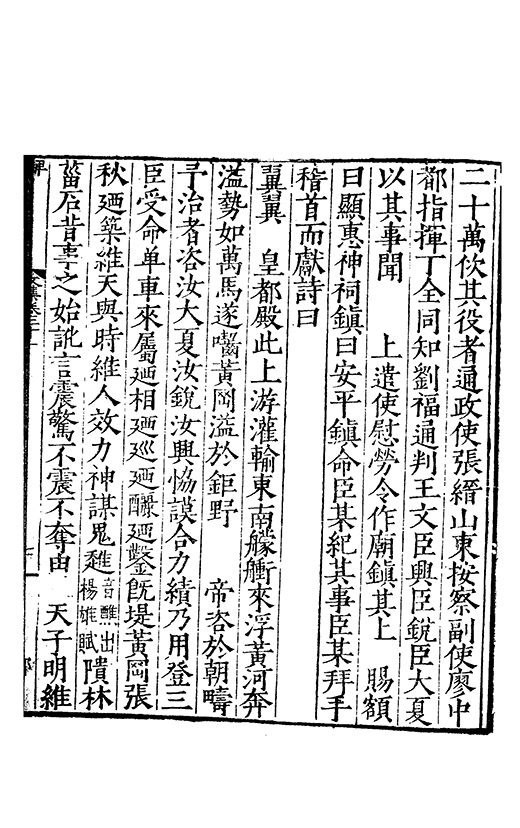 二十萬佽其役者通政使張縉山東按察副使廖中
都指揮丁全同知劉福通判王文臣興臣銳臣大夏
以其事聞　上遣使慰勞令作廟鎮其上　賜額
曰顯惠神祠鎮曰安平鎮命臣某紀其事臣某拜手
稽首而獻詩曰
翼翼　皇都殿此上游灌輸東南艨衝來浮黃河奔
溢勢如萬馬遂嚙黃岡溢於鉅野　帝咨於朝疇
予治者咨汝大夏汝銳汝興協謨合力績乃用登三
臣受命单車來屬廼相廼巡廼釃廼鑿旣堤黃岡張
秋廼築維天與時維人效力神謀鬼趡音醮出楊雄賦隤林
菑石昔事之始訛言震驚不震不奪由　天子明維